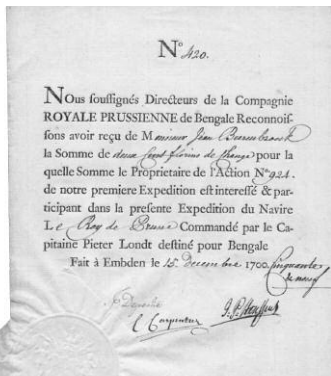 N° 420.
Nous soussignés Directeurs de la Compagnie
ROYALE PRUSSIENNE de Bengale Reconnois-
sons avoir reçu de Monsieur Jean
la Somme de deux Cent florins de Change pour la
quelle Somme le Proprietaire de l'Action N° 924.
de notre premiere Expedition est interessé & par-
ticipant dans la presente Expedition du Navire
Le Roy de Prusse Commandé par le Ca-
pitaine Pieter Londt destiné pour Bengale
Fait à Embden le 15. Decembre 1700 Cinquante
& neuf
C Carpentier